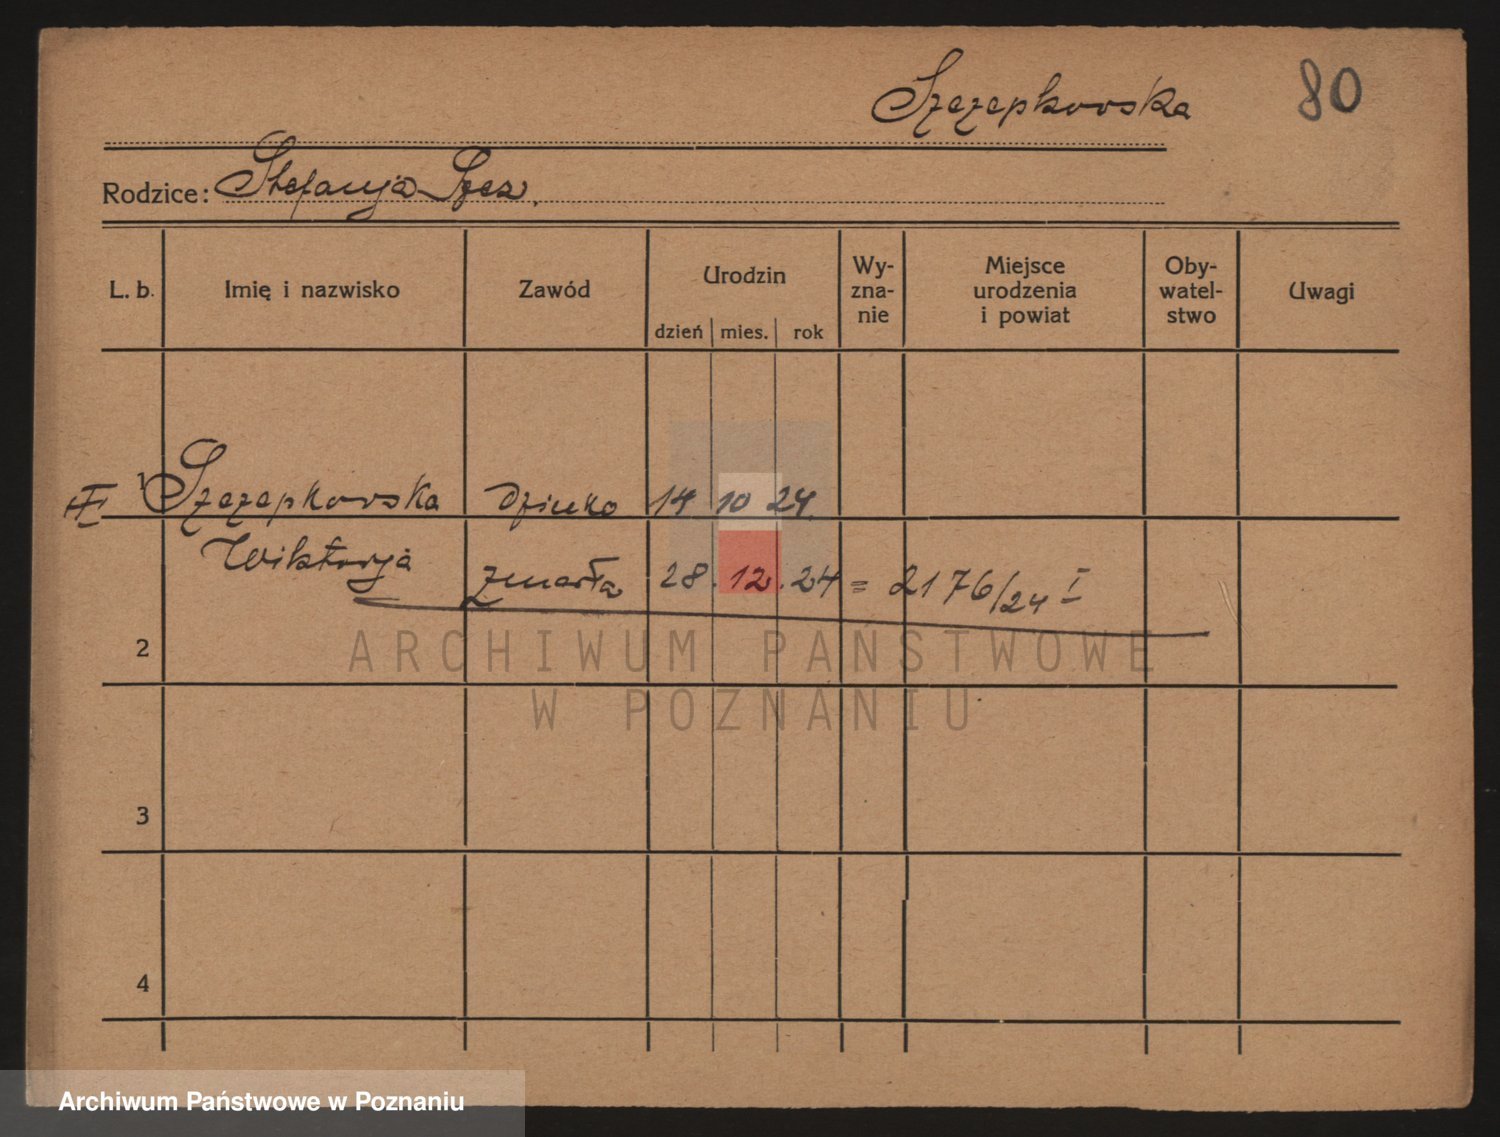 Szczepkowska 80
Rodzice: Stefanja Szcz.
L. b. Imię i nazwisko Zawód Urodzin Wy-zna-nie Miejsce urodzenia i powiat Oby-watel-stwo Uwagi
dzień mies. rok
1 Szczepkowska Dziecko 14 10 24.
Wiktorja
zmarła 28. 12. 24 = 2176/24 I
2
ARCHIWUM PAŃSTWOWE
W POZNANIU
3
4
Archiwum Państwowe w Poznaniu